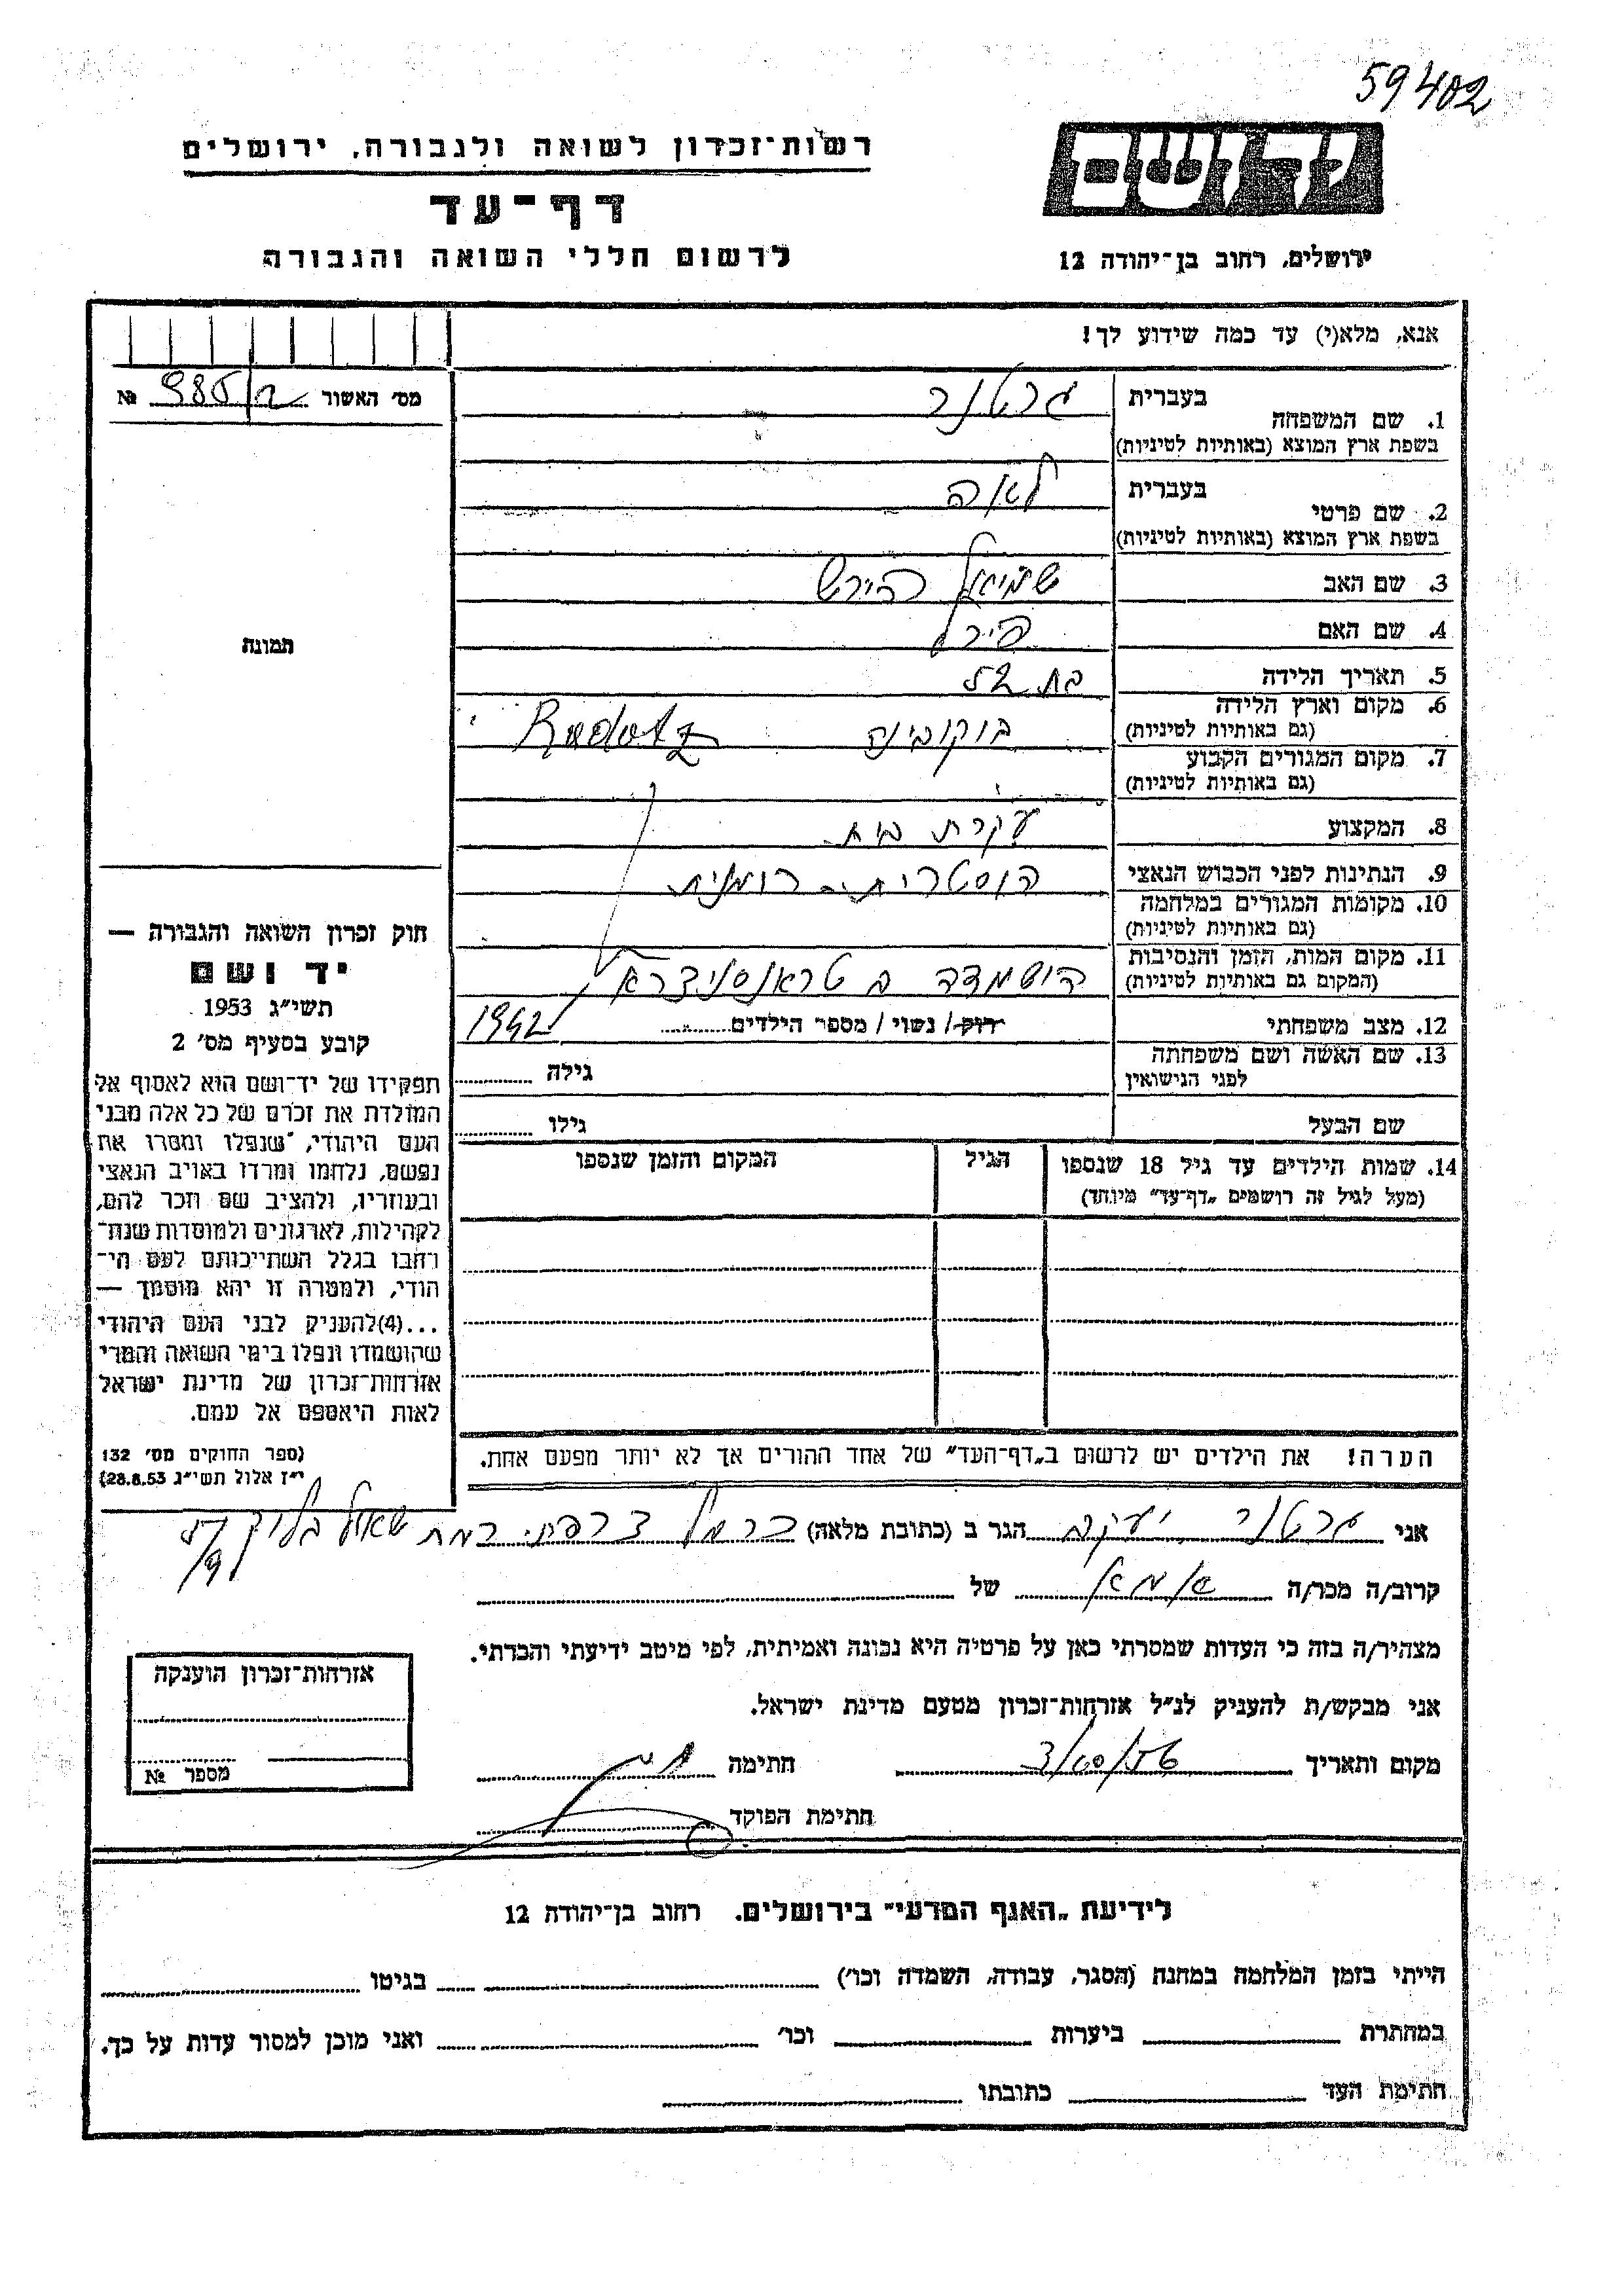 59402
רשות־זכרון לשואה ולגבורה, ירושלים
דף־עד
לרשום חללי השואה והגבורה
יד ושם
ירושלים, רחוב בן־יהודה 12
אנא, מלא(י) עד כמה שידוע לך!
מס' האשור 985/ב №
בעברית גרטנר
1. שם המשפחה
בשפת ארץ המוצא (באותיות לטיניות)
בעברית לאה
2. שם פרטי
בשפת ארץ המוצא (באותיות לטיניות)
3. שם האב שמואל הירש
4. שם האם
5. תאריך הלידה בת
6. מקום וארץ הלידה בוקובינה Radotz
(גם באותיות לטיניות)
7. מקום המגורים הקבוע
(גם באותיות לטיניות)
8. המקצוע עקרת בית
9. הנתינות לפני הכבוש הנאצי אוסטרית - רומנית
10. מקומות המגורים במלחמה
(גם באותיות לטיניות)
11. מקום המות, הזמן והנסיבות
(המקום גם באותיות לטיניות) הושמדה ב טראנסניצרא
12. מצב משפחתי רוק/ נשוי / מספר הילדים 1942
13. שם האשה ושם משפחתה גילה
לפני הנישואין
שם הבעל גילו
14. שמות הילדים עד גיל 18 שנספו הגיל המקום והזמן שנספו
(מעל לגיל זה רושמים „דף־עד" מיוחד)
הערה! את הילדים יש לרשום ב„דף־העד" של אחד ההורים אך לא יותר מפעם אחת.
תמונה
חוק זכרון השואה והגבורה —
יד ושם
תשי"ג 1953
קובע בסעיף מס' 2
תפקידו של יד־ושם הוא לאסוף אל
המולדת את זכרם של כל אלה מבני
העם היהודי, "שנפלו ומסרו את
נפשם, נלחמו ומרדו באויב הנאצי
ובעוזריו, ולהציב שם וזכר להם,
לקהילות, לארגונים ולמוסדות שנח־
רחבו בגלל השתייכותם לעם הי־
הודי, ולמטרה זו יהא מוסמך —
...(4)להעניק לבני העם היהודי
שהושמדו ונפלו בימי השואה והמרי
אזרחות־זכרון של מדינת ישראל
לאות היאספם אל עמם.
(ספר החוקים מס' 132
י"ז אלול תשי"ג 28.8.53)
אני גרטנר יעקב הגר ב (כתובת מלאה) כרמל צרפתי. רמת שאול בליק
קרוב/ה מכר/ה אמא של
מצהיר/ה בזה כי העדות שמסרתי כאן על פרטיה היא נכונה ואמיתית, לפי מיטב ידיעתי והכרתי.
אני מבקש/ת להעניק לנ"ל אזרחות־זכרון מטעם מדינת ישראל.
מקום ותאריך חתימה
חתימת הפוקד
אזרחות־זכרון הוענקה
מספר №
לידיעת „האגף המדעי" בירושלים. רחוב בן־יהודה 12
הייתי בזמן המלחמה במחנה (הסגר, עבודה, השמדה וכו') בגיטו
במחתרת ביערות וכו' ואני מוכן למסור עדות על כך.
חתימת העד כתובתו